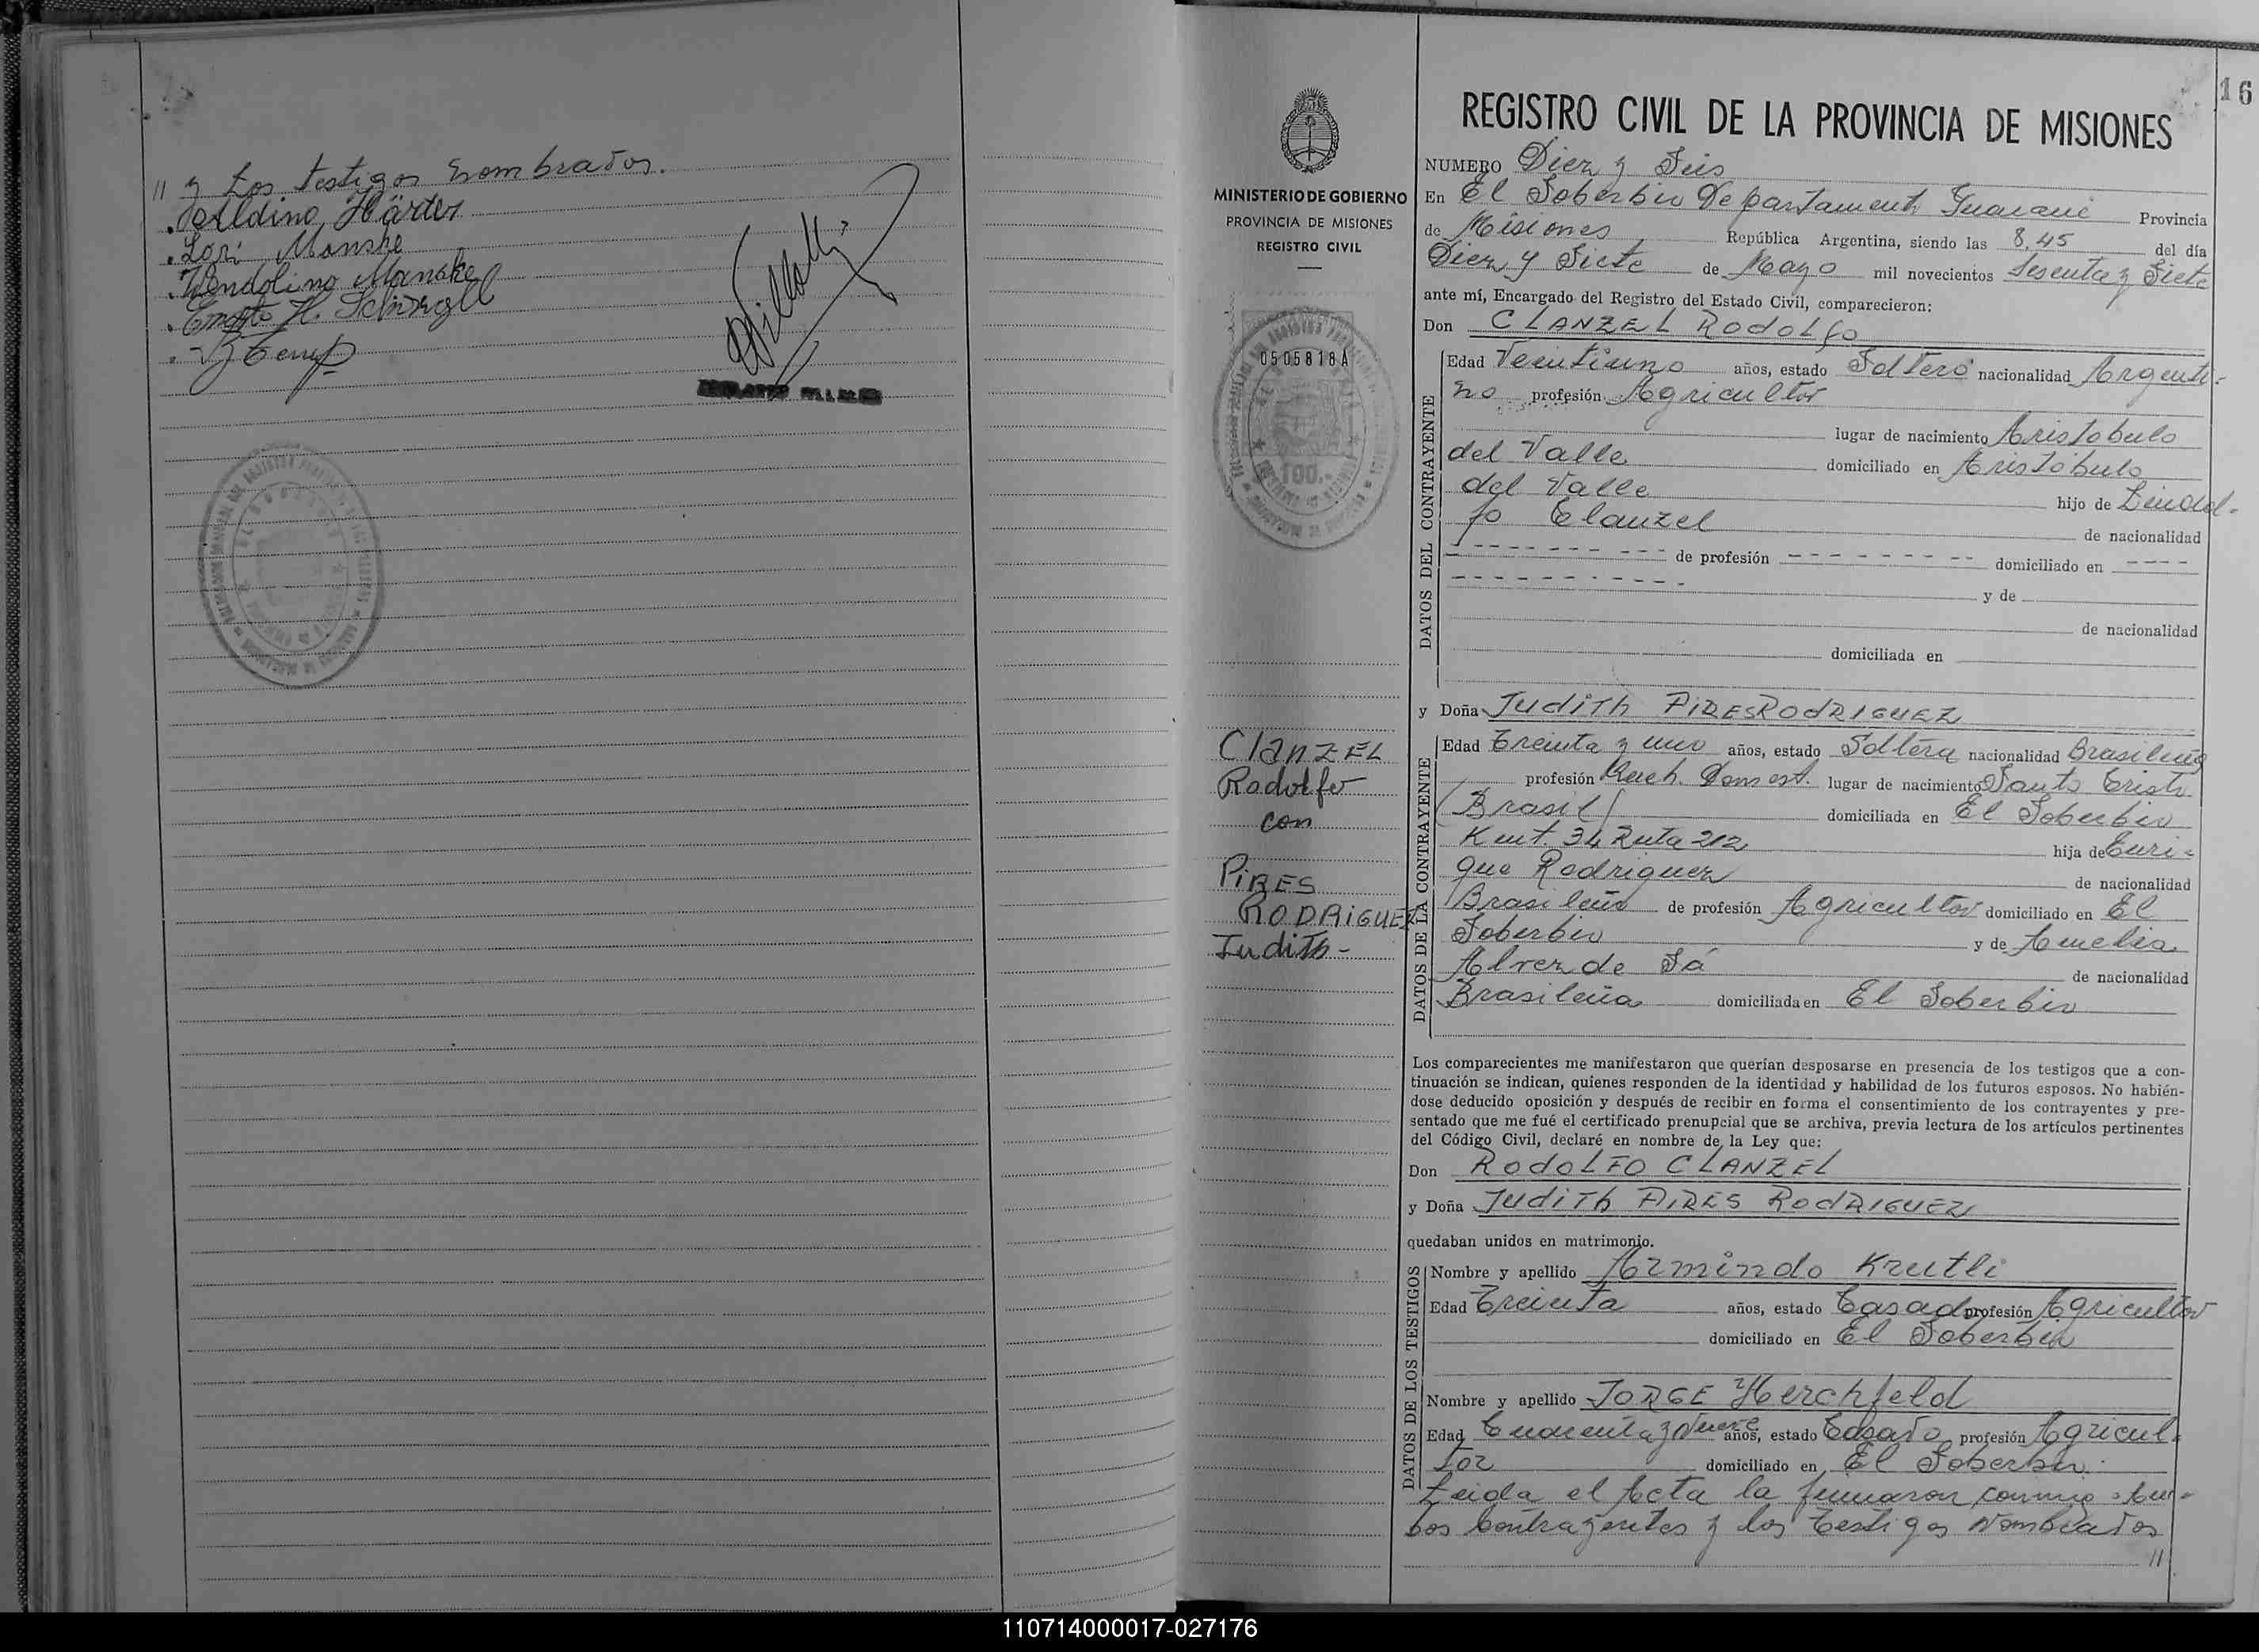 // y Los testigos nombrados.
. Aldino Härter
. Lori Manske
. Wendolino Manske
16
REGISTRO CIVIL DE LA PROVINCIA DE MISIONES
MINISTERIO DE GOBIERNO
PROVINCIA DE MISIONES
REGISTRO CIVIL
0505818A
100.-
NUMERO Diez y Seis
En El Soberbio Departamento Guarani Provincia
de Misiones República Argentina, siendo las 8,45 del día
Diez y Siete de Mayo mil novecientos Sesenta y Siete
ante mí, Encargado del Registro del Estado Civil, comparecieron:
Don CLANZEL RodoLfo
DATOS DEL CONTRAYENTE
Edad Veintiuno años, estado Soltero nacionalidad Argenti-
no profesión Agricultor
lugar de nacimiento Aristobulo
del Valle domiciliado en Aristobulo
del Valle hijo de Lindol-
fo Clanzel de nacionalidad
- - - - - - - - - de profesión - - - - - - - - - domiciliado en - - - -
- - - - - - - - - - - y de
de nacionalidad
domiciliada en
y Doña Judith PIRES RODRIGUEZ
DATOS DE LA CONTRAYENTE
Edad Treinta y uno años, estado Soltera nacionalidad Brasileña
profesión Queh. Domest. lugar de nacimiento Santo Cristo
(Brasil) domiciliada en El Soberbio
Kmt. 34 Ruta 212 hija de Enri-
que Rodriguez de nacionalidad
Brasileño de profesión Agricultor domiciliado en El
Soberbio y de Amelia
Alvez de Sá de nacionalidad
Brasileña domiciliada en El Soberbio
ClanZEL
Rodolfo
con
PIRES
RODRIGUEZ
Judith-
Los comparecientes me manifestaron que querían desposarse en presencia de los testigos que a con-
tinuación se indican, quienes responden de la identidad y habilidad de los futuros esposos. No habién-
dose deducido oposición y después de recibir en forma el consentimiento de los contrayentes y pre-
sentado que me fué el certificado prenupcial que se archiva, previa lectura de los artículos pertinentes
del Código Civil, declaré en nombre de la Ley que:
Don RODOLFO CLANZEL
y Doña Judith PIRES RodRIGUEZ
quedaban unidos en matrimonio.
DATOS DE LOS TESTIGOS
Nombre y apellido Armindo Krutli
Edad Treinta años, estado Casado profesión Agricultor
domiciliado en El Soberbio
Nombre y apellido JORGE Herchfeld
Edad Cuarenta y Nueve años, estado Casado profesión Agricul-
tor domiciliado en El Soberbio.
Leida el Acta la firmaron conmigo Am-
bos Contrayentes y los Testigos Nombrados
//
110714000017-027176